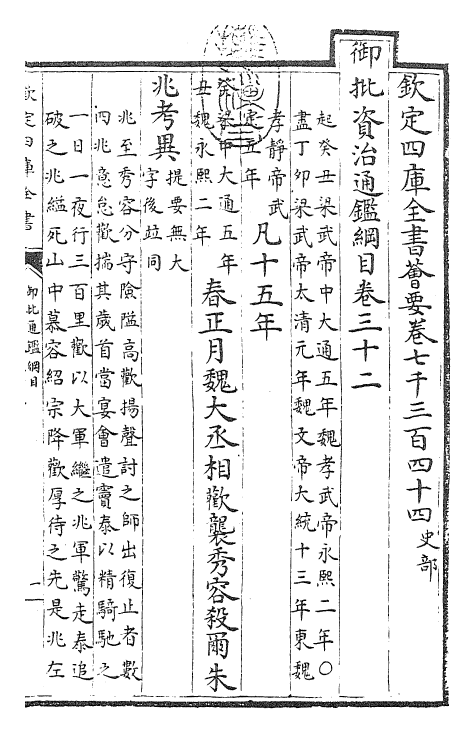 欽定四庫全書薈要卷七千三百四十四史部
御批資治通鑑綱目卷三十二
起癸丑梁武帝中大通五年魏孝武帝永熙二年〇
盡丁卯梁武帝太清元年魏文帝大統十三年東魏
孝靜帝武
定五年
凡十五年
癸梁中大通五年
丑魏永熙二年
春正月魏大丞相歡襲秀容殺爾朱
兆考異
提要無大
字後竝同
兆至秀容分守險隘高歡揚聲討之師出復止者數
四兆意怠歡揣其歲首當宴會遣竇泰以精騎馳之
一日一夜行三百里歡以大軍繼之兆軍驚走泰追
破之兆縊死山中慕容紹宗降歡厚待之先是兆左
欽定四庫全書
御批通鑑綱目
一